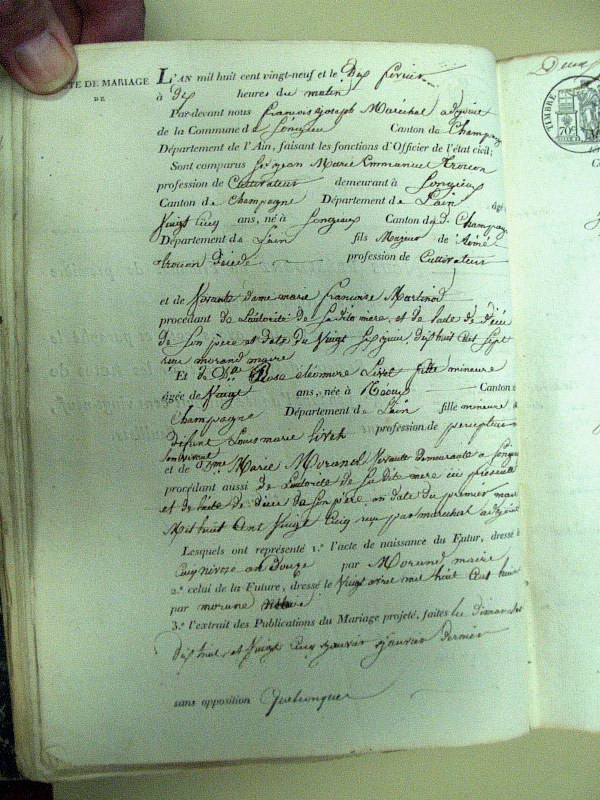 TE DE MARIAGE
DE
L'AN mil huit cent vingt-neuf et le Dix fevrier
à dix heures du matin
Par-devant nous françois joseph Maréchal adjoint
de la Commune de Songieu Canton de Champag
Département de l'Ain, faisant les fonctions d'Officier de l'état civil;
Sont comparus jean Marie Emmanuel trocon
profession de Cultivateur demeurant à Songieux
Canton de Champagne Département de Lain âgé
Vingt Cinq ans, né à Songieux Canton de Champag
Département de Lain fils Majeur de Aimé
trocon décédé profession de Cultivateur
et de vivante dame marie françoise Martinod
procédant de Lautorité de sa dite mere, et de lacte de décé
de son père et date du Vingt six juin, dix huit Cent Sept
morand maire
Et de Dlle Rosa éléonore Livet fille mineure
âgée de Vingt ans, née à Canton
Champagne Département de Lain fille mineure
défunt Louis marie livet profession de percepteur
et de Dme Marie Morand demeurante a Songieu
procédant aussi de Lautorité de Sa dite mere ici présente
et de lacte de décé de Son père en date du premier mars
Mil huit Cent Vingt Cinq reçu par maréchal adjoint
Lesquels ont représenté 1.º l'acte de naissance du Futur, dressé
Cinq nivose an Douze par Morand maire
2.º celui de la Future, dressé le Vingt avril mil huit Cent huit
par morand
3.º l'extrait des Publications du Mariage projeté, faites les dimanches
dix huit et Vingt Cinq janvier dernier
sans opposition Quelconque
Deux
TIMBRE
70